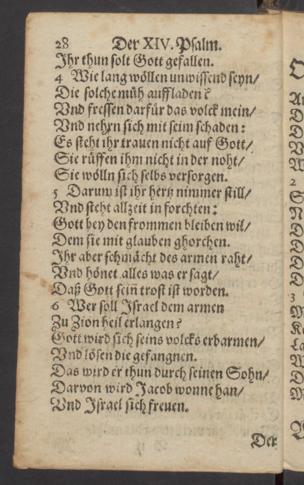 28 Der XIV. Psalm.
Ihr thun solt Gott gefallen.
4 Wie lang wöllen unwissend seyn/
Die solche müh auffladen?
Vnd fressen darfür das volck mein/
Vnd nehrn sich mit seim schaden:
Es steht ihr trauen nicht auf Gott/
Sie rüffen ihm nicht in der noht/
Sie wölln sich selbs versorgen.
5 Darum ist ihr hertz nimmer still/
Vnd steht allzeit in forchten:
Gott bey den frommen bleiben wil/
Dem sie mit glauben ghorchen.
Ihr aber schmächt des armen raht/
Vnd hönet alles was er sagt/
Daß Gott sein trost ist worden.
6 Wer soll Israel dem armen
Zu Zion heil erlangen?
Gott wird sich seins volcks erbarmen/
Vnd lösen die gefangnen.
Das wird er thun durch seinen Sohn/
Darvon wird Jacob wonne han/
Vnd Israel sich freuen.
Der